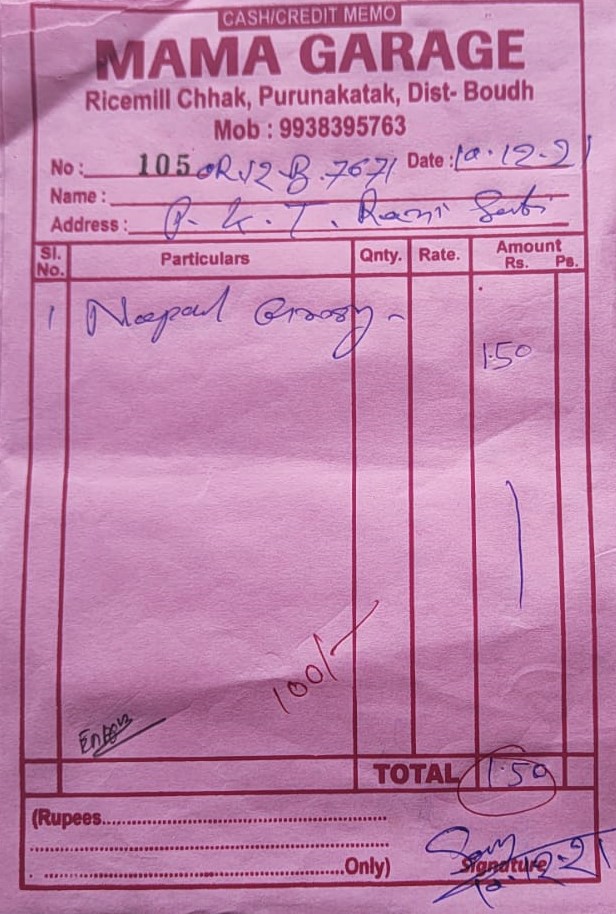 CASH/CREDIT MEMO
MAMA GARAGE
Ricemill Chhak, Purunakatak, Dist- Boudh
Mob : 9938395763
No : 105 OR12-B.7671 Date : 10.12.21
Name :
Address : P. K. T.
Sl. No. Particulars Qnty. Rate. Amount Rs. Ps.
1
150
100/-
TOTAL 150
(Rupees
Only) Signature
10.12.21